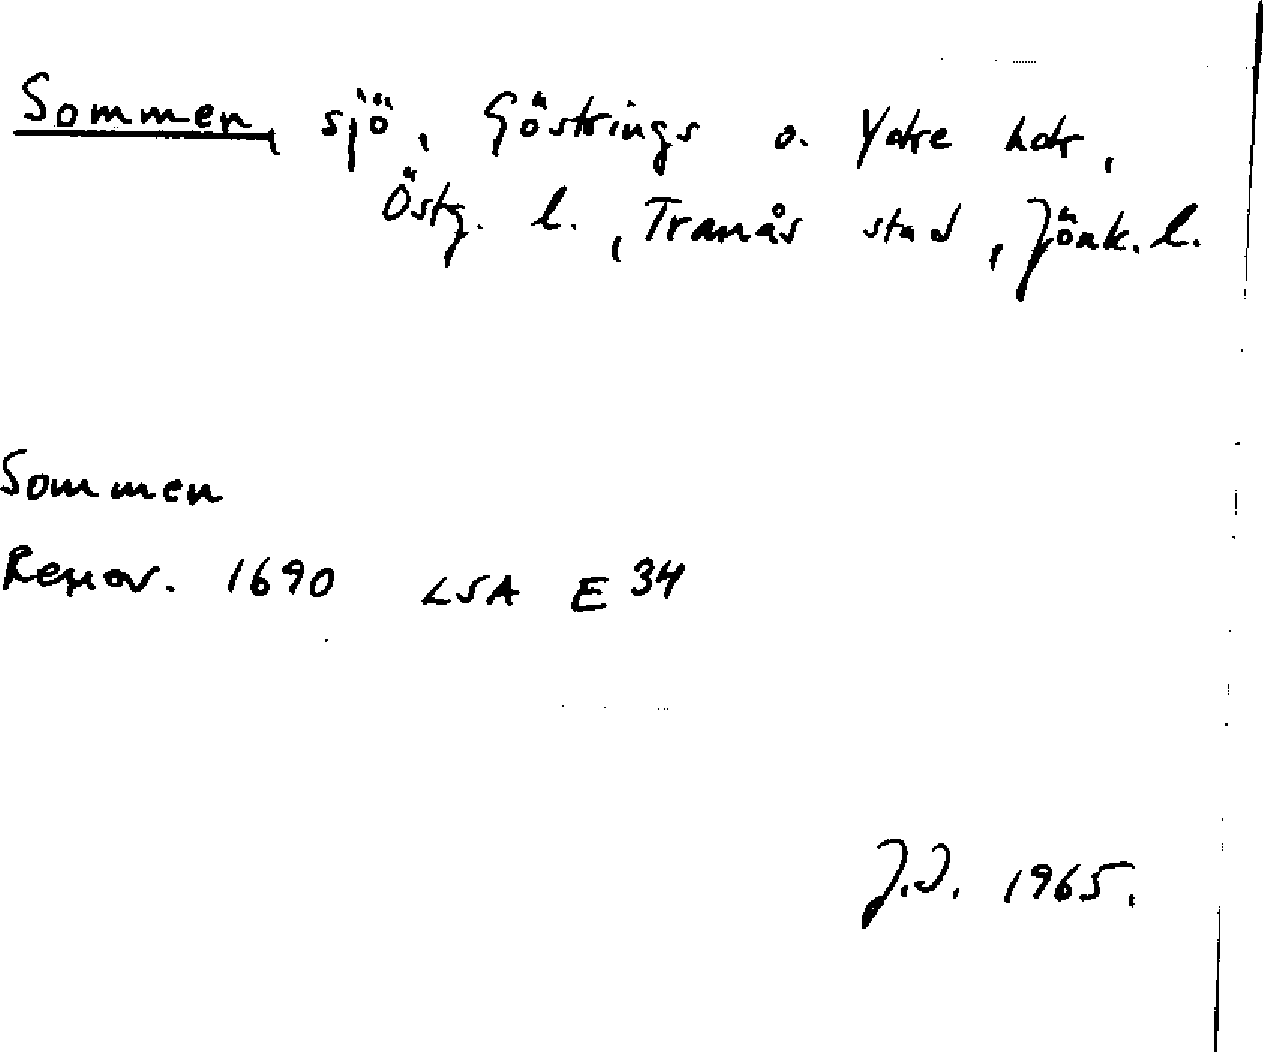 Sommen, sjö, Göstrings o. Ydre hdr,
Östg. l., Tranås stad, Jönk. l.
Sommen
Renov. 1690 LSA E 34
J.I. 1965.